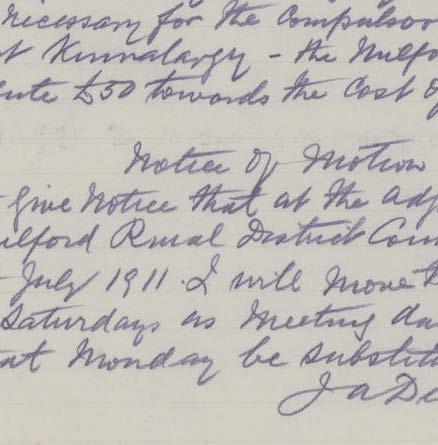 necessary for the Compulsor
t Kinnalargy - the Milfo
ute £50 towards the Cost of
Notice of Motion
Give Notice that at the Adj
ilford Rural District Coun
July 1911. I will move t
Saturdays as Meeting da
at Monday be substit
J A De